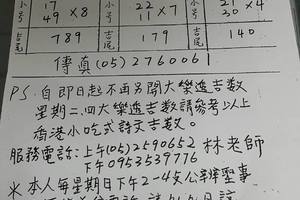 小号 17 49 × 8 小号 22 11 × 7 小号 21 30 × 4
吉尾 789 吉尾 179 吉尾 140
傳真(05)2760061
PS. 自即日起不再另開大樂透吉数
星期二.四大樂透吉数請參考以上
香港小吃式詩文吉数。
服務電話:上午(05)2590652 林老師
下午0953539776
※本人每星期日下午2-4支公